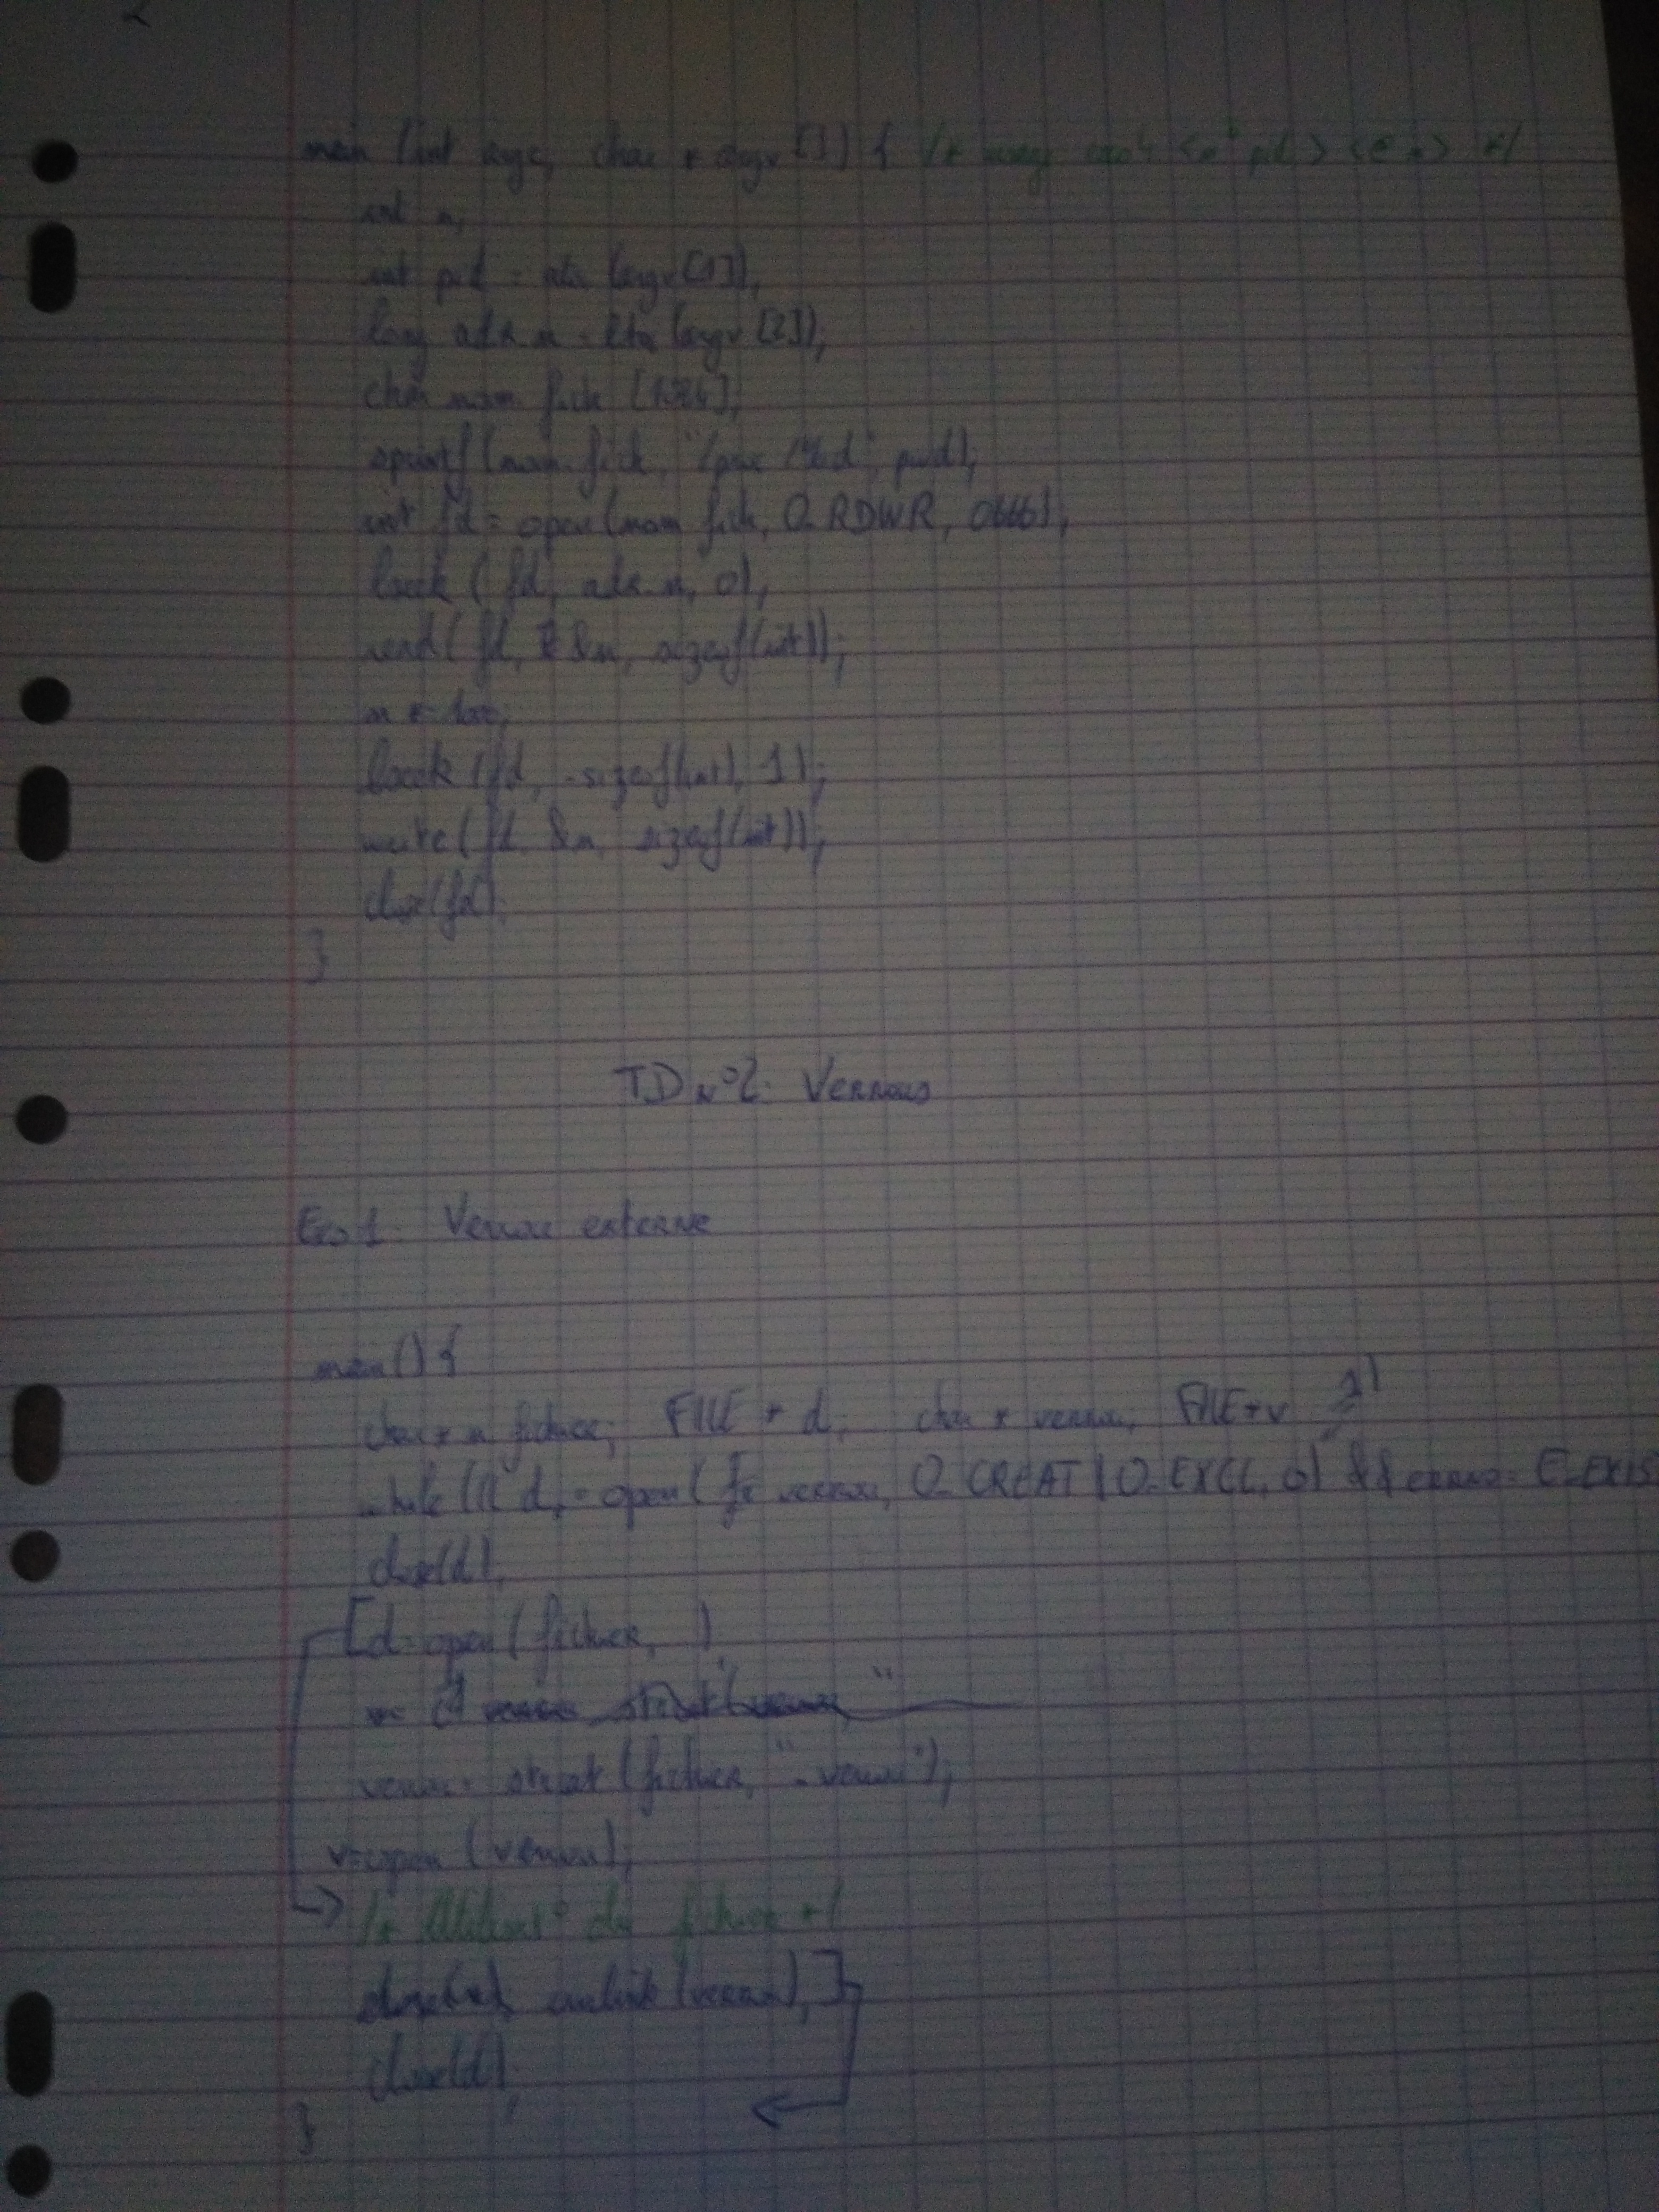 2
main (int argc, char * argv []) { /* <n° pid> <@ n> */
int n,
int pid = atoi (argv [1]),
long adr n = (argv [2]);
char nom fich [1024],
sprintf (nom.fich, "/proc/%d", pid),
int fd = open (nom fich, O_RDWR, 0666),
lseek (fd, adr_n, 0),
read (fd, &n, sizeof(int));
lseek (fd, -sizeof(int), 1);
write (fd, &n, sizeof(int));
close(fd)
}
TD N°2: Verrous
Exo 1 Verrou externe
main() {
char * n fichier; FILE * d, char * verrou, FILE * v
while (( d = open ( verrou, O_CREAT | O_EXCL, 0) && errno = E_EXIS
close(d),
[d=open (fichier, )
verrou = strcat (fichier, ".verrou");
v=open (verrou);
/* Utilisat° du fichier */
unlink (verrou), ]
close(d),
}